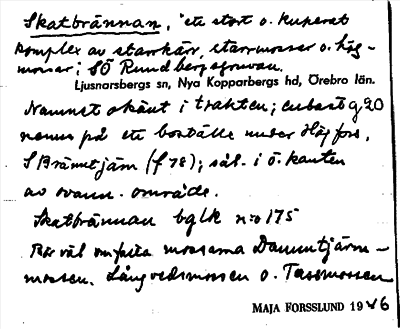 Skatbrännan, "ett stort o. kuperat
komplex av starrkärr, starrmossar o. hög-
mossar; SÖ Rundbergsgruvan.
Ljusnarsbergs sn, Nya Kopparbergs hd, Örebro län.
Namnet okänt i trakten; endast g 20
namn på ett boställe under Högfors,
S Bränntjärn (f 78); säl. i ö. kanten
av ovann. område.
Skatbrännan bglk n:o 175
Bör väl omfatta mossarna Dammtjärns-
mossen, Långvedsmossen o. Tassmossen
MAJA FORSSLUND 1946